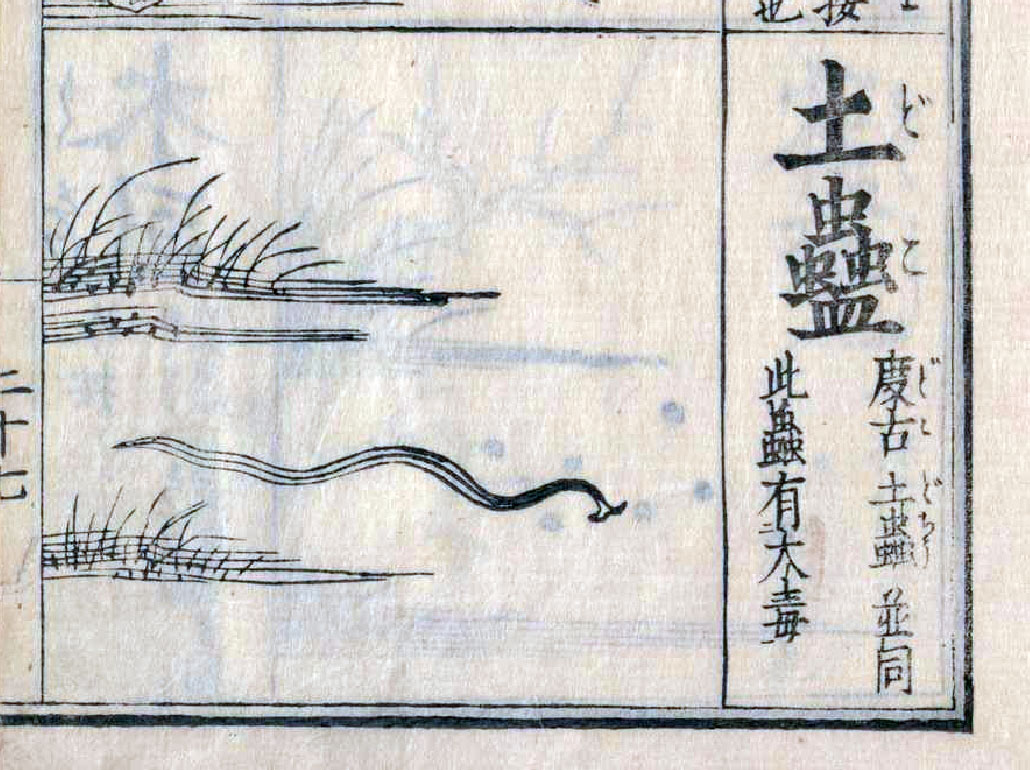 土蠱
どこ
度古 土蟲 並同
どこ どちう
此蟲有大毒
二十七